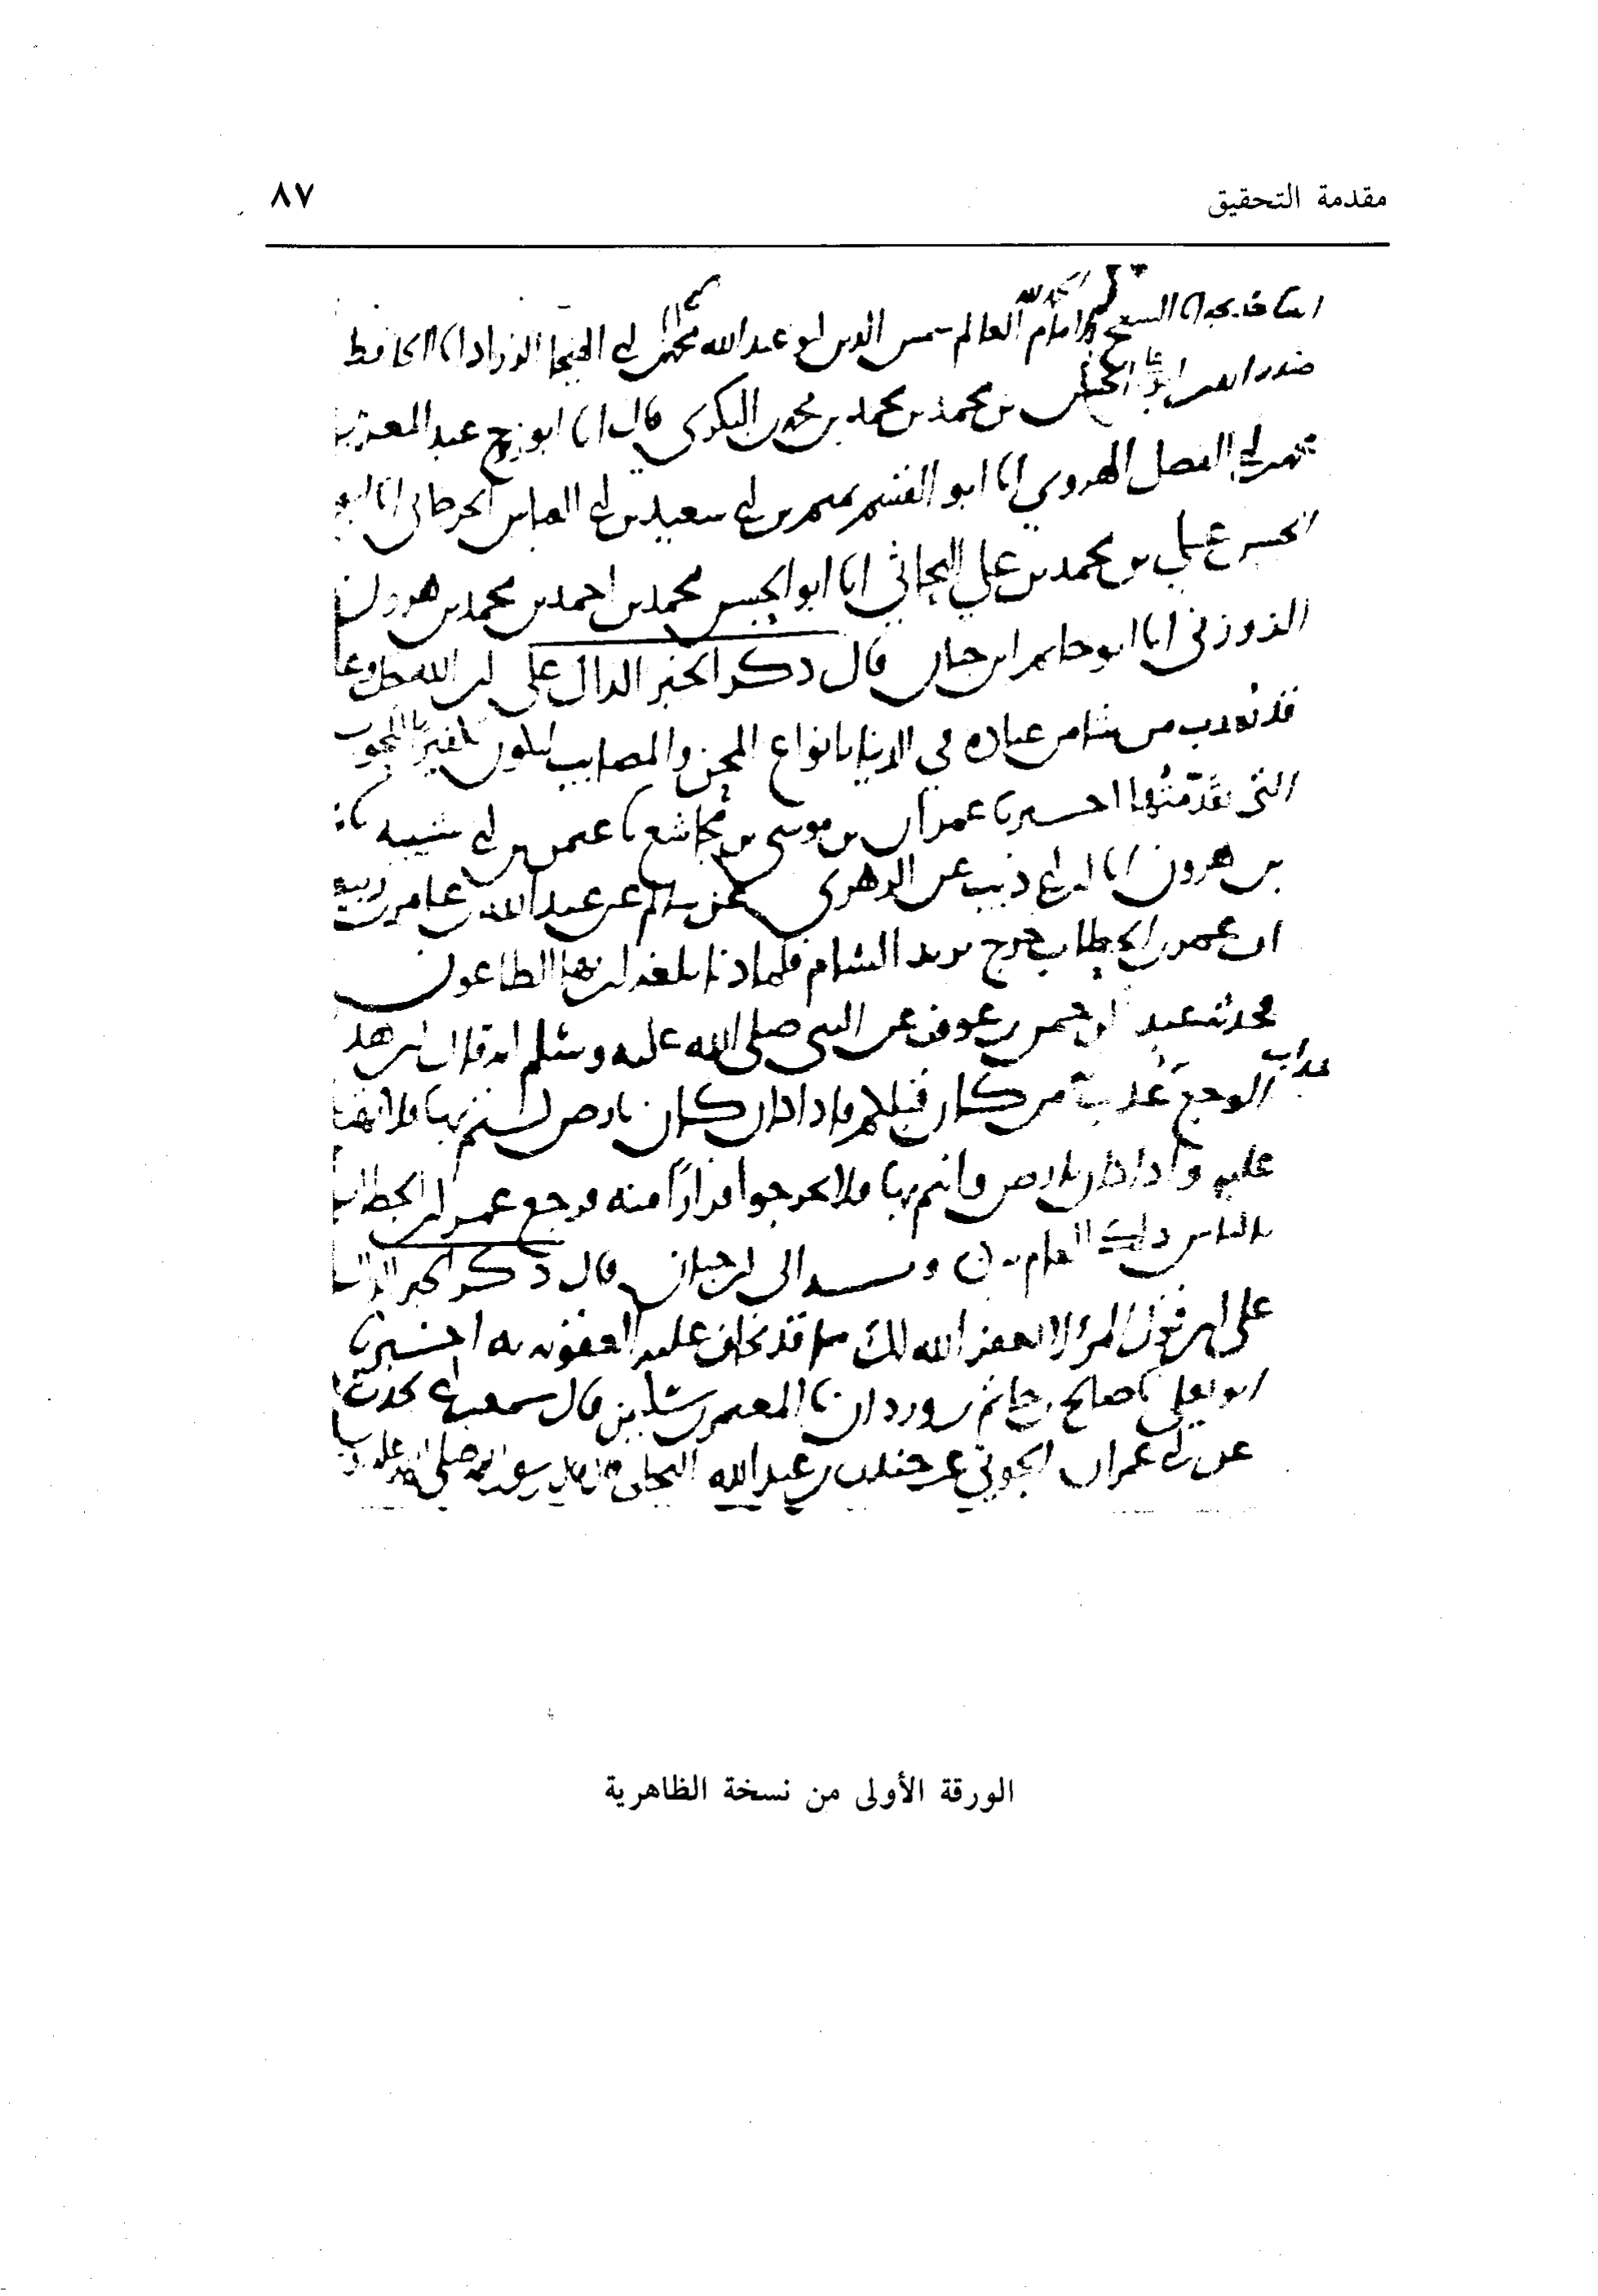 مقدمة التحقيق ٨٧
الشيخ الامام العالم شمس الدين ابو عبد الله محمد بن ابي الهيجا الزراد انا الحافظ
بن محمد بن محمد بن محمد البكري قال انا ابو روح عبد المعز بن
محمد بن ابي الفضل الهروي انا ابو القسم تميم بن ابي سعيد بن ابي العباس الجرجاني انا ابو
الحسن علي بن محمد بن علي البحاثي انا ابو الحسن محمد بن احمد بن محمد بن هرون
الزوزني انا ابو حاتم ابن حبان قال ذكر الخبر الدال على ان الله جل وعلا
قد يعذب من شا من عباده في الدنيا بانواع المحن والمصايب لتكون تكفيرا للحوب
التي تقدمتها اخبرنا عمران بن موسى بن مجاشع نا عثمن بن ابي شيبه نا
بن هرون انا ابن ابي ذيب عن الزهري عن سالم عن عبد الله بن عامر بن ربيعه
ان عمر بن الخطاب خرج يريد الشام فلما دنا بلغه ان بها الطاعون
فحدثه عبد الرحمن بن عوف عن النبي صلى الله عليه وسلم انه قال ان هذا
الوجع عذاب عذب به من كان قبلكم فاذا كان بارض لستم بها فلا تهبطوا
عليه واذا كان بارض وانتم بها فلا تخرجوا فرارا منه فرجع عمر بن الخطاب
بالناس ذلك العام وبه الى ابن حبان قال ذكر الخبر الدال
على ان قول المرء لا يغفر الله لك مما قد يخاف عليه العقوبه به اخبرنا
ابو يعلى نا صالح بن حاتم بن وردان نا المعتمر بن سليمن قال سمعت ابي يحدث
عن ابي عمران الجوني عن جندب بن عبد الله البجلي قال قال رسول الله صلى الله عليه
الورقة الأولى من نسخة الظاهرية